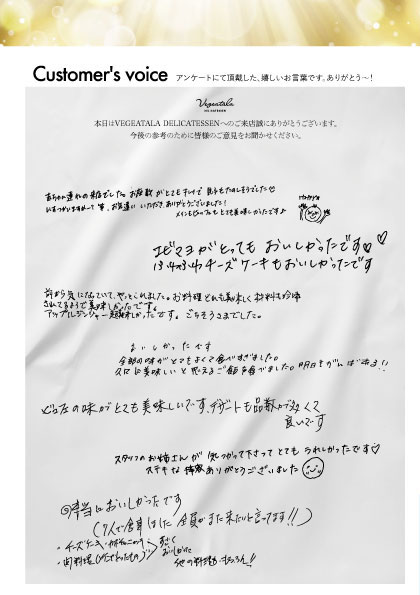 Customer's voice アンケートにて頂戴した、嬉しいお言葉です。ありがとう〜！
Vegeatala
本日はVEGEATALA DELICATESSENへのご来店誠にありがとうございます。
今後の参考のために皆様のご意見をお聞かせください。
赤ちゃん連れの来店でした。お座敷がとてもキレイで息子もたのしそうでした♡
いただき ありがとうございました！
メインもビュッフェもとても美味しかったです♪
エビマヨがとっても おいしかったです♡♡
チーズケーキもおいしかったです
前から気になっていて、やっとこれました。お料理どれも美味しく
されてるようで美味しかったです。
アップルジンジャー 超美味しかったです。ごちそうさまでした。
おいしかったです
全部の味がとてもよくて食べすぎました。
久々に美味しいと思えるご飯を食べました。明日もがんばれる！！
どのお店の味がとても美味しいです、デザートも品数が多くて
良いです
スタッフのお姉さんが 気づかって下さってとても うれしかったです♡
ステキな 接客ありがとうございました
本当においしかったです
(7人で食事しました 全員がまた来たいと言ってます!!)
・チーズケーキ
すごく
おいしかった
・肉料理
他の料理も もちろん!!